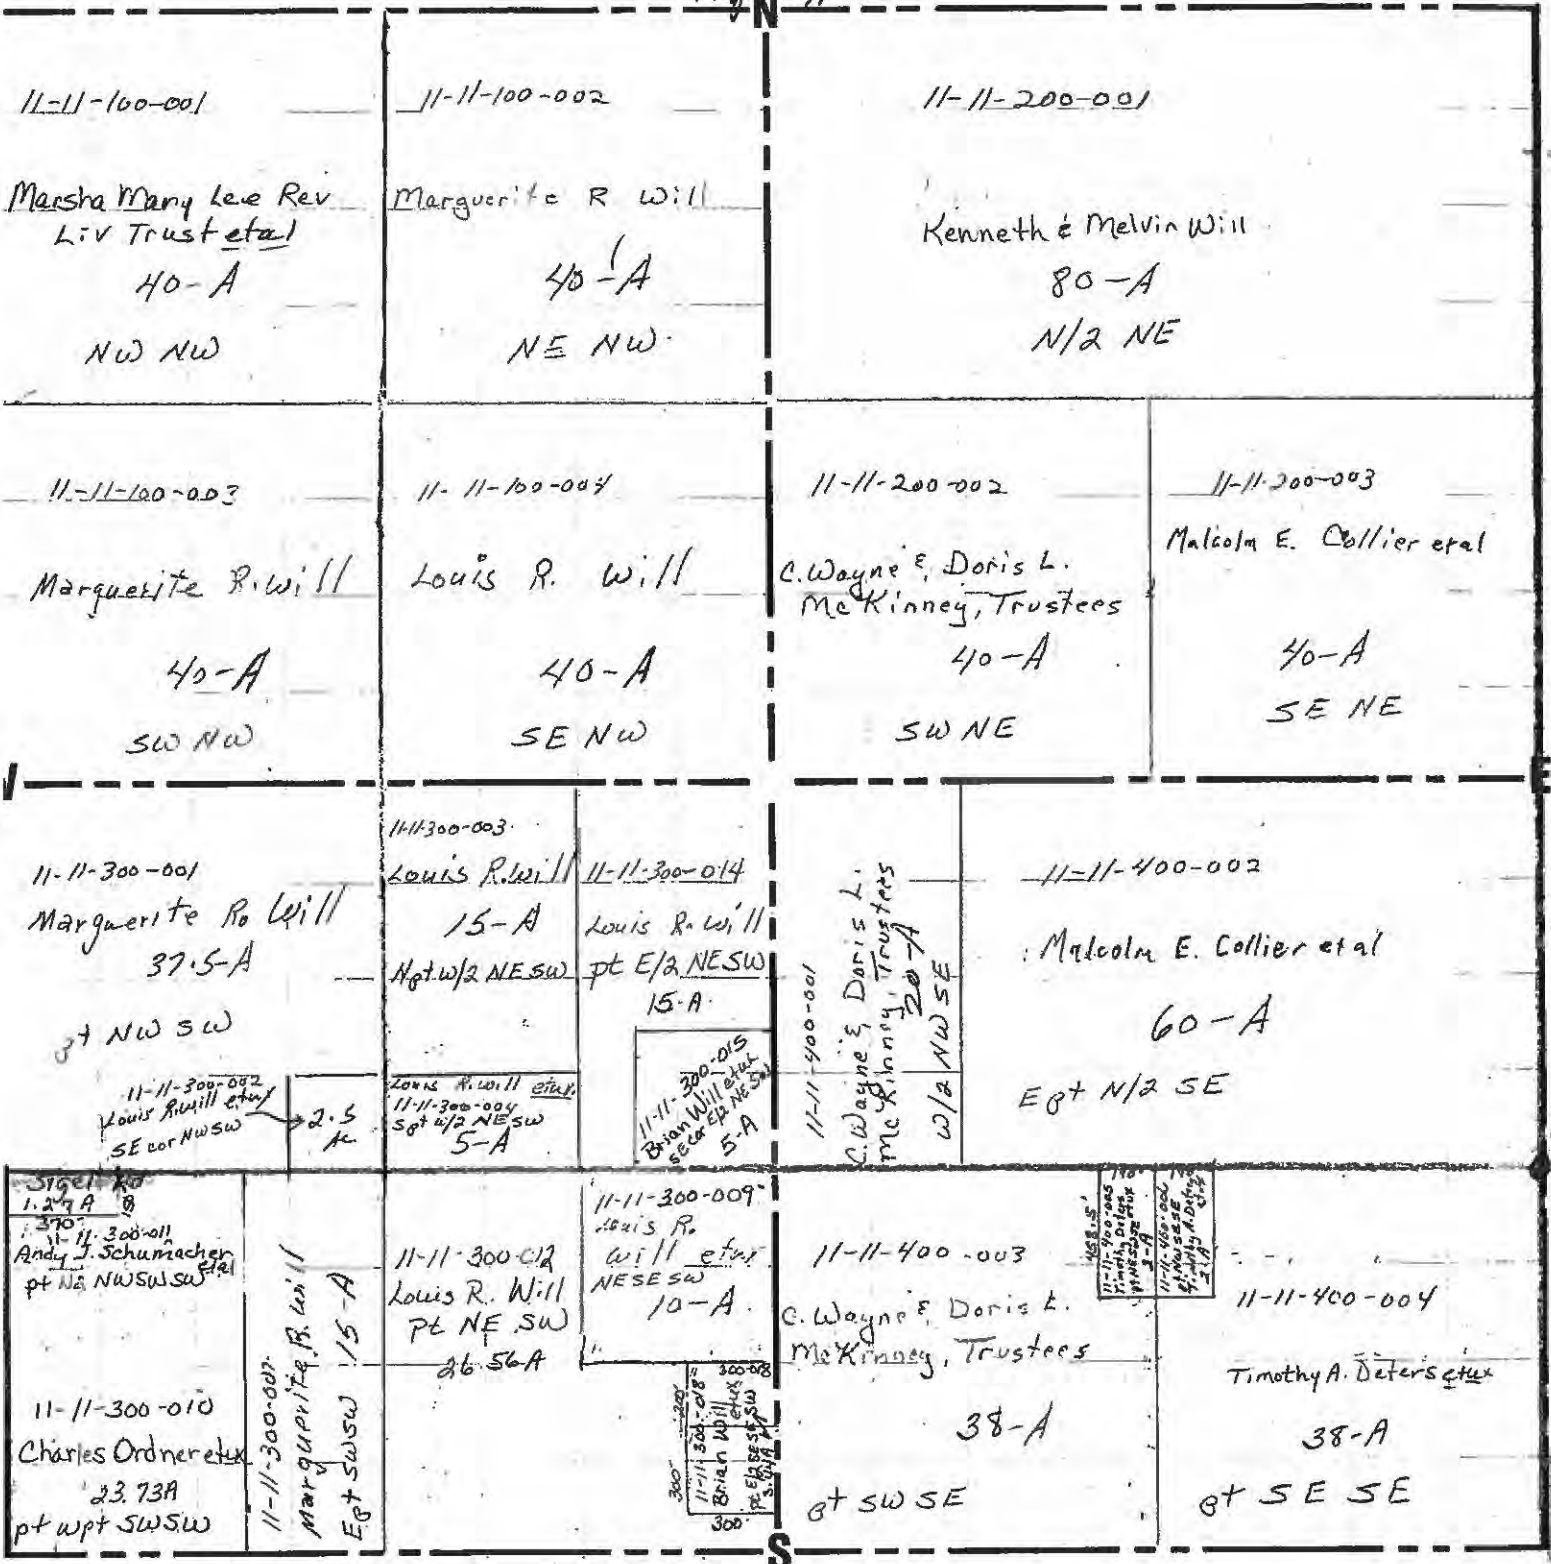 N
11-11-100-001
Marsha Mary Lee Rev
Liv Trust etal
40-A
NW NW
11-11-100-002
Marguerite R Will
40-A
NE NW
11-11-200-001
Kenneth & Melvin Will
80-A
N/2 NE
11-11-100-003
Marguerite R. Will
40-A
SW NW
11-11-100-004
Louis R. Will
40-A
SE NW
11-11-200-002
C. Wayne & Doris L.
McKinney, Trustees
40-A
SW NE
11-11-200-003
Malcolm E. Collier etal
40-A
SE NE
E
11-11-300-001
Marguerite R. Will
37.5-A
pt NW SW
11-11-300-002
Louis R. Will etux
SE cor NWSW
2.5
Ac
11-11-300-003
Louis R. Will
15-A
Npt W/2 NESW
Louis R. Will etux.
11-11-300-004
Spt W/2 NESW
5-A
11-11-300-014
Louis R. Will
pt E/2 NESW
15-A
11-11-300-015
Brian Will etux
SE cor E/2 NESW
5-A
11-11-400-001
C. Wayne & Doris L.
McKinney, Trustees
20-A
W/2 NW SE
11-11-400-002
Malcolm E. Collier etal
60-A
Ept N/2 SE
Sigel Rd
1.27A
370
11-300-011
Andy J. Schumacher
etal
pt NWSWSW
11-11-300-010
Charles Ordner etux
23.73A
pt wpt SWSW
11-11-300-007
Marguerite R. Will
Ept SWSW 15-A
11-11-300-012
Louis R. Will
Pt NE SW
26.56A
11-11-300-009
Louis R.
Will etux
NESESW
10-A
300-018
11-11-300-018
Brian Will etux
pt E/2 SESESW
300'
300'
11-11-400-003
C. Wayne & Doris L.
McKinney, Trustees
38-A
pt SW SE
458.5'
11-11-400-005
2-A
11-11-400-006
Timothy A. Deters
2-A
11-11-400-004
Timothy A. Deters etux
38-A
pt SE SE
S